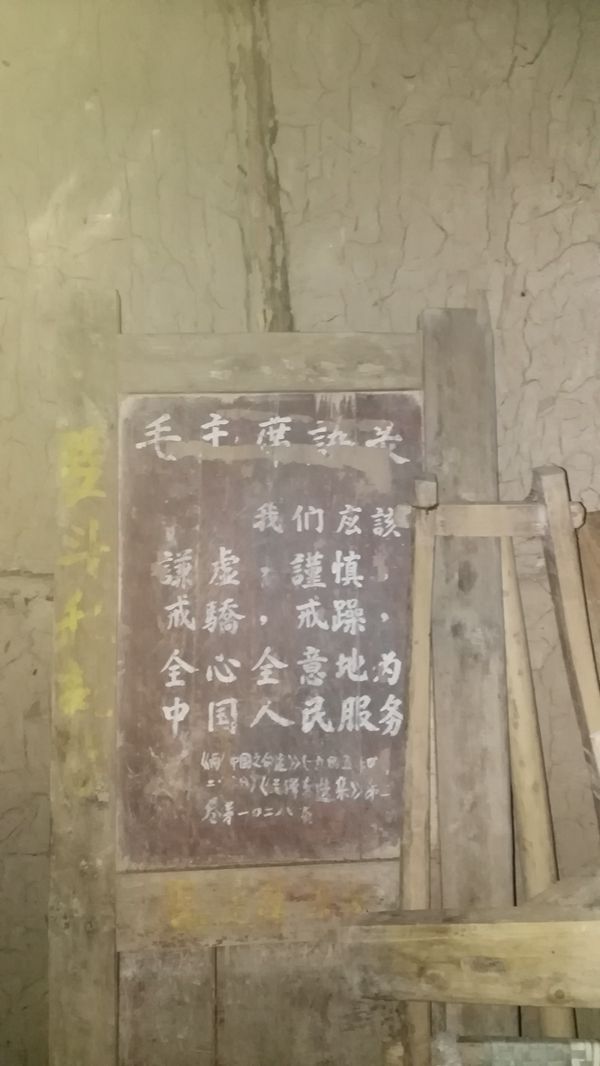 毛主席語录
我们应該
謙虚，謹慎，
戒驕，戒躁，
全心全意地为
中国人民服务
中国之命运》(一九四五年四
《毛澤东选集》第
卷第一〇二八頁
斗私